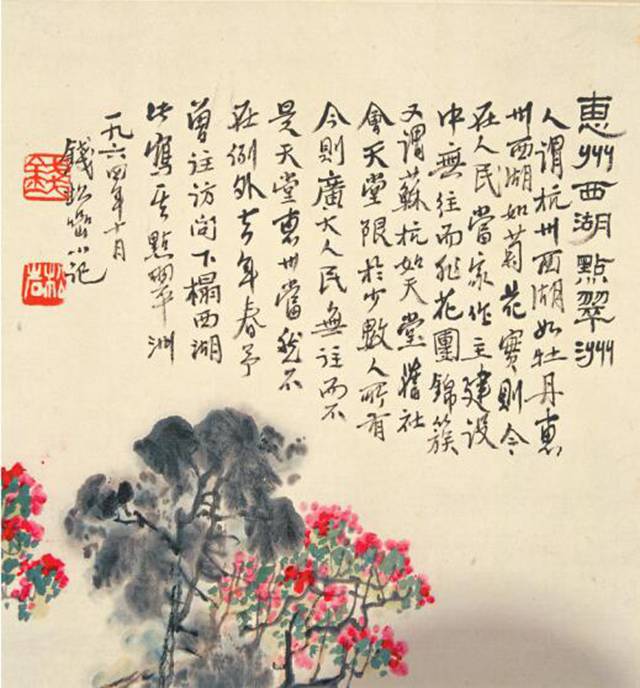 惠州西湖點翠洲
人謂杭州西湖如牡丹惠
州西湖如菊花實則今
在人民當家作主建設
中無往而非花團錦簇
又謂蘇杭如天堂舊社
會天堂限於少數人所有
今則廣大人民無往而不
是天堂惠州當然不
在例外去年春予
曾往訪問下榻西湖
此寫其點翠洲
一九六四年十月
錢松嵒小記
錢
松岩